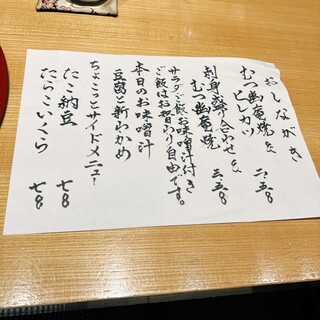 おしながき
むつ幽庵焼 &
ヒレカツ 二、五〇
刺身盛り合わせ &
むつ幽庵焼 三、五〇
サラダご飯お味噌汁付き
ご飯はお替わり自由です。
本日のお味噌汁
豆腐と新わかめ
ちょこっとサイドメニュー
たこ納豆 七〇
たらこいくら 七〇